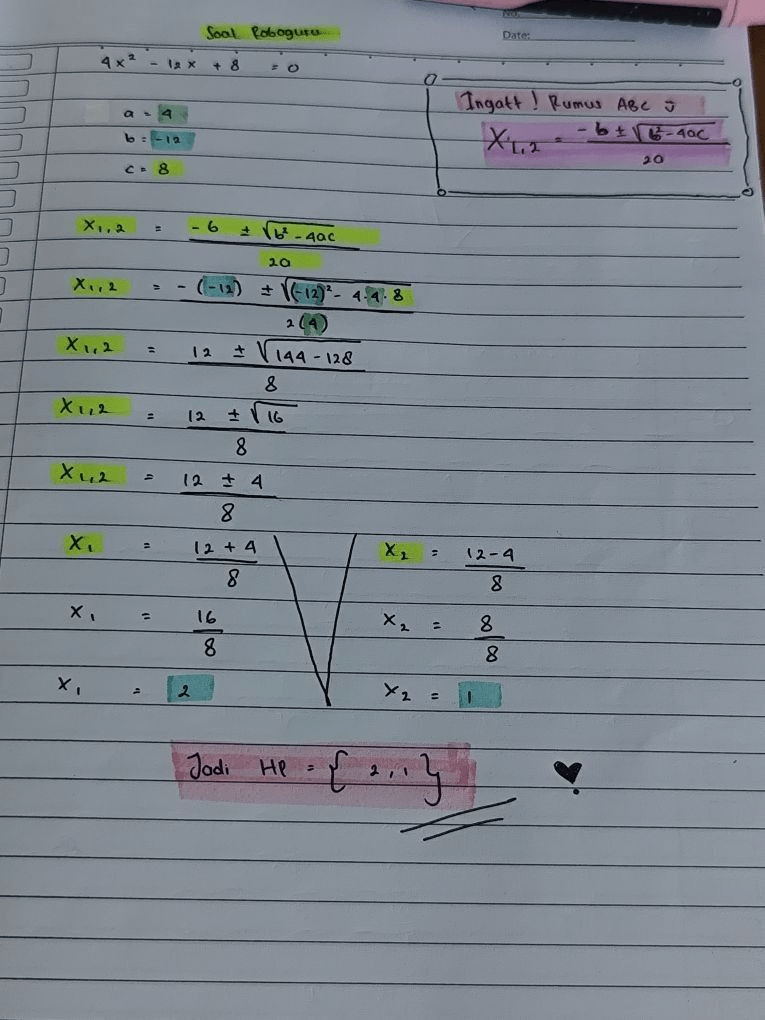 Soal Roboguru
No.
Date:
4x² - 12x + 8 = 0
Ingatt ! Rumus ABC
X₁,₂ = (-b ± √(b² - 4ac)) / 2a
a = 4
b = -12
c = 8
X₁,₂ = (-b ± √(b² - 4ac)) / 2a
X₁,₂ = (-(-12) ± √((-12)² - 4·4·8)) / 2(4)
X₁,₂ = (12 ± √(144 - 128)) / 8
X₁,₂ = (12 ± √16) / 8
X₁,₂ = (12 ± 4) / 8
X₁ = (12 + 4) / 8
X₁ = 16 / 8
X₁ = 2
X₂ = (12 - 4) / 8
X₂ = 8 / 8
X₂ = 1
Jadi HP = { 2, 1 }